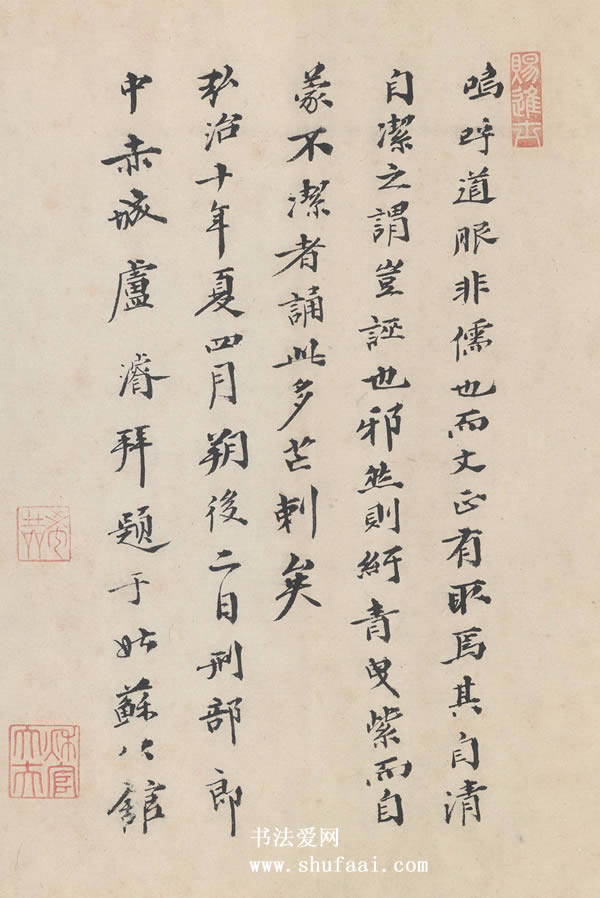 嗚呼道服非儒也而文正有取焉其自清
自潔之謂豈誣也邪然則紆青曳紫而自
蒙不潔者誦此多芒刺矣
弘治十年夏四月朔後二日刑部郎
中赤城盧濬拜題于姑蘇公館
賜進士
秋官大夫
书法爱网
www.shufaai.com